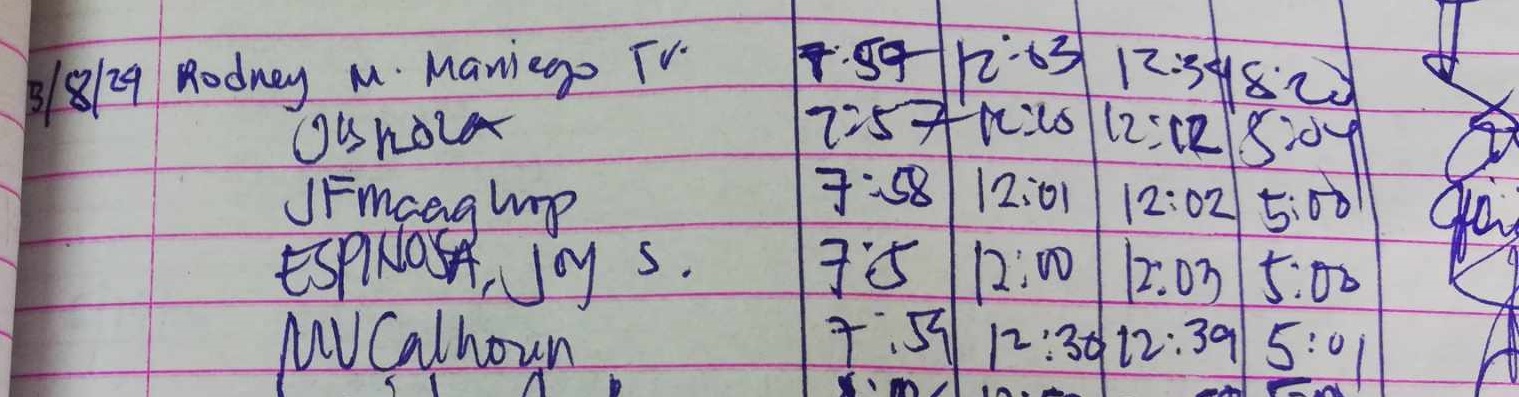 3/8/24 Rodney M. Maniego Jr. 7:59 12:03 12:34 8:20
7:57 12:10 12:12 5:04
JFmaaghop 7:58 12:01 12:02 5:00
ESPINOSA, Joy S. 7:5 12:00 12:03 5:00
MVCalhoun 7:59 12:38 12:39 5:01